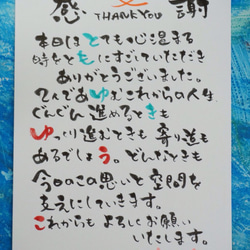 感 謝
THANK YOU
本日はとても心温まる
時をともにすごしていただき
ありがとうございました。
2人であゆむこれからの人生
ぐんぐん進めるときも
ゆっくり進むときも寄り道も
あるでしょう。どんなときも
今日のこの思いと空間を
支えにしていきます。
これからもよろしくお願い
いたします。